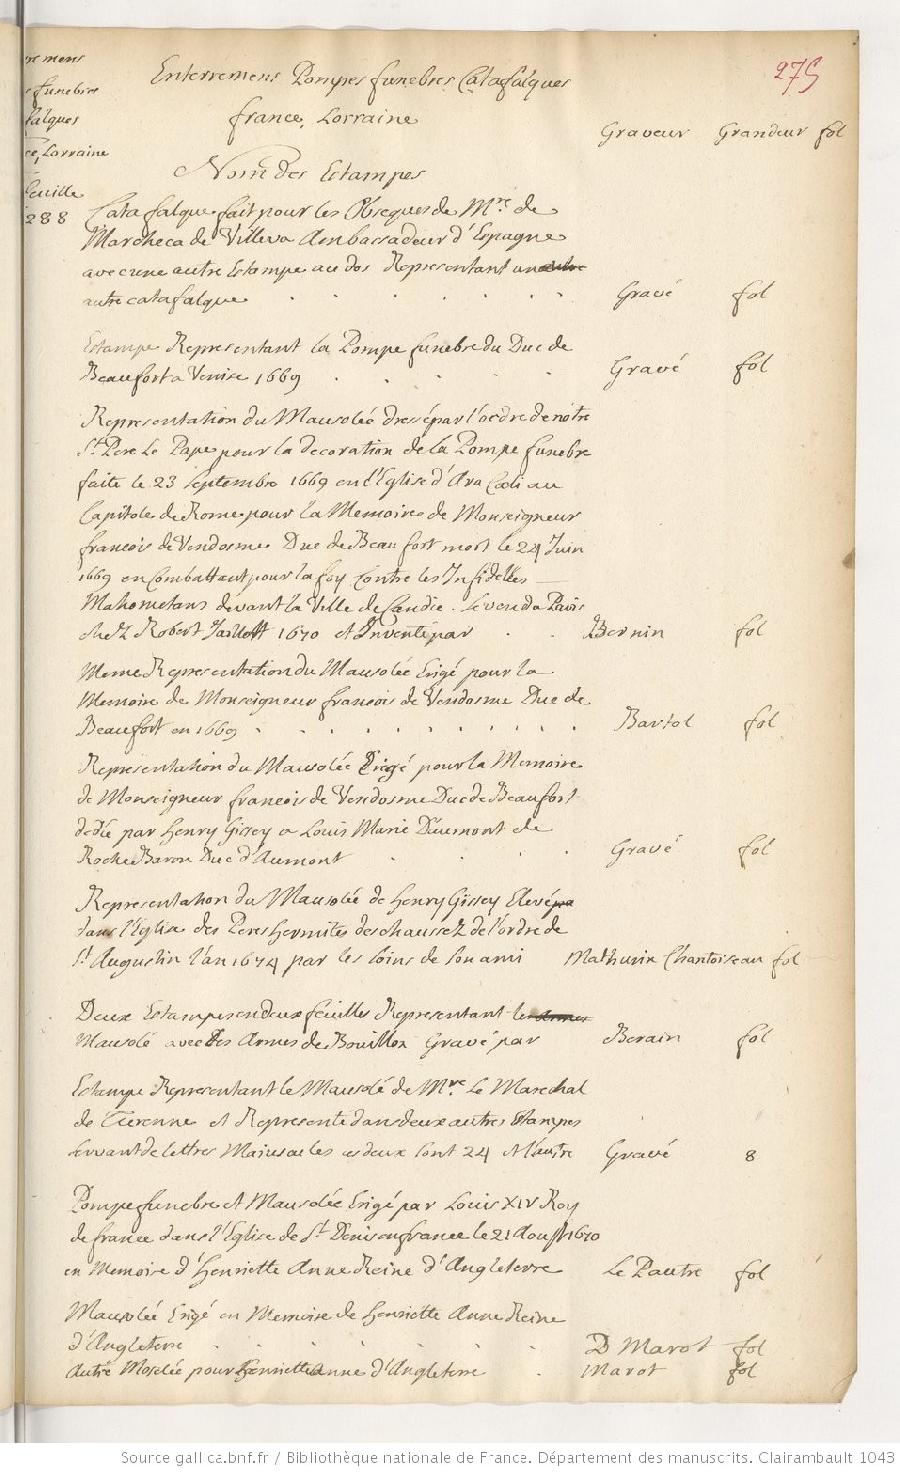 275
Enterremens Pompes funebres Catafalques
france, Lorraine
Graveur Grandeur fol
Nom des Estampes
funebre
Lorraine
288
Catafalque fait pour les Obseques de Mre de
Marcheca de Villeva Ambassadeur d'Espagne
avec une autre Estampe au dos Representant un autre
autre catafalque Gravé fol
Estampe Representant la Pompe funebre du Duc de
Beaufort a Venise 1669 Gravé fol
Representation du Mausolée dressé par l'ordre de nôtre
St. Pere Le Pape pour la decoration de la Pompe funebre
faite le 23 Septembre 1669 en l'Eglise d'Ara Coeli au
Capitole de Rome pour la Memoire de Monseigneur
francois de Vendosme Duc de Beaufort mort le 24 Juin
1669 en Combattant pour la foy Contre les Infidelles
Mahometans devant la Ville de Candie. Se vend a Paris
chez Robert Jaillott 1670 et Inventé par Bernin fol
Meme Representation du Mausolée Erigé pour la
Memoire de Monseigneur francois de Vendosme Duc de
Beaufort en 1669 Bartol fol
Representation du Mausolée Erigé pour la Memoire
de Monseigneur francois de Vendosme Duc de Beaufort
dedié par henry Gissey a Louis Marie D'aumont de
Roche Baron Duc d'Aumont Gravé fol
Representation du Mausolée de henry Gissey Elevé pa
dans l'Eglise des Peres hermites deschaussez de l'ordre de
St. Augustin l'an 1674 par les soins de son ami Mathurin Chantoiseau fol
Deux Estampes en deux feuilles Representant le Armes
Mausolé avec les Armes de Bouillon Gravé par Berain fol
Estampe Representant le Mausolé de Mre. Le Marechal
de Turenne et Representé dans deux autres Estampes
servant de lettres Majuscules ces deux sont 24 et l'autre Gravé 8
Pompe funebre et Mausolée Erigé par Louis XIV Roy
de france dans l'Eglise de St. Denis en france le 21 Aoust 1670
en Memoire d'henriette Anne Reine d'Angleterre Le Pautre fol
Mausolée Erigé en Memoire de henriette Anne Reine
d'Angleterre D Marot fol
Autre Moselée pour henriette Anne d'Angleterre Marot fol
Source gallica.bnf.fr / Bibliothèque nationale de France. Département des manuscrits. Clairambault 1043